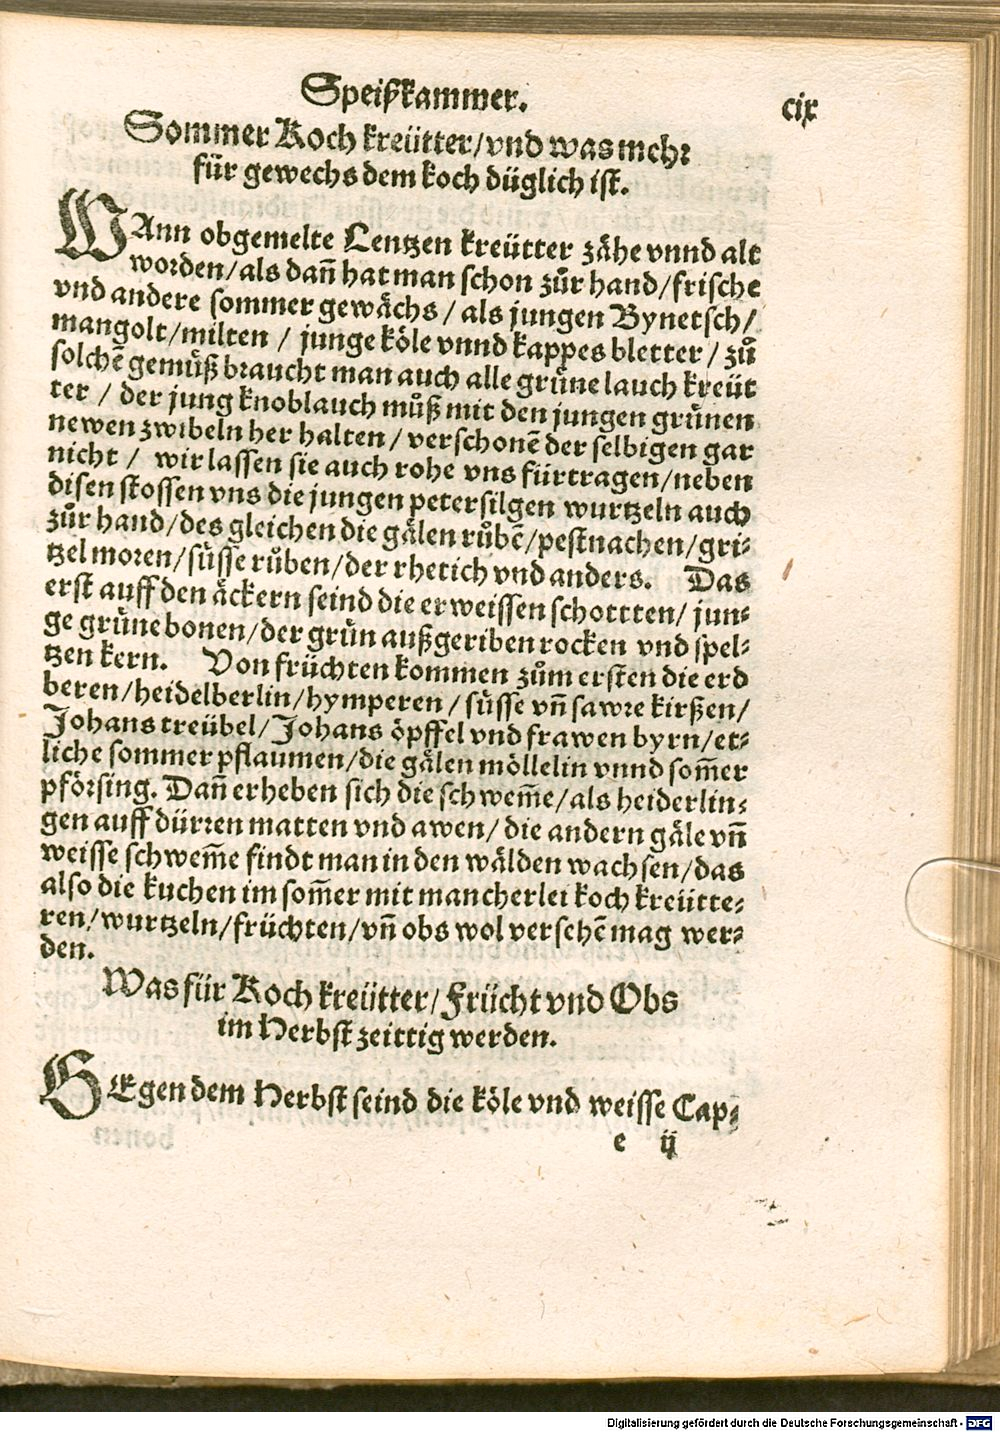 Speißkammer.
cix
Sommer Koch kreütter/vnd was mehr
für gewechs dem koch düglich ist.
WAnn obgemelte Lentzen kreütter zähe vnnd alt
worden/als dañ hat man schon zůr hand/frische
vnd andere sommer gewächs / als jungen Bynetsch/
mangolt/milten / junge köle vnnd kappes bletter / zů
solchē gemüß braucht man auch alle grüne lauch kreüt
ter / der jung knoblauch můß mit den jungen grünen
newen zwibeln her halten / verschonē der selbigen gar
nicht / wir lassen sie auch rohe vns fürtragen/neben
disen stossen vns die jungen petersilgen wurtzeln auch
zůr hand/des gleichen die gälen růbē/pestnachen/gri-
tzel moren/süsse růben/der rhetich vnd anders. Das
erst auff den äckern seind die erweissen schottten/ jun-
ge grüne bonen/der grün außgeriben rocken vnd spel-
tzen kern. Von früchten kommen zům ersten die erd
beren/heidelberlin/hymperen / süsse vñ sawre kirßen/
Johans treübel/Johans öpffel vnd frawen byrn/et-
liche sommer pflaumen/die gälen möllelin vnnd som̃er
pförsing. Dañ erheben sich die schwem̃e/als heiderlin-
gen auff dürren matten vnd awen/ die andern gäle vñ
weisse schwem̃e findt man in den wälden wachsen/das
also die kuchen im som̃er mit mancherlei koch kreütte-
ren/wurtzeln/früchten/vñ obs wol versehē mag wer-
den.
Was für Koch kreütter/Frücht vnd Obs
im Herbst zeittig werden.
GEgen dem Herbst seind die köle vnd weisse Cap-
e ij
Digitalisierung gefördert durch die Deutsche Forschungsgemeinschaft - DFG